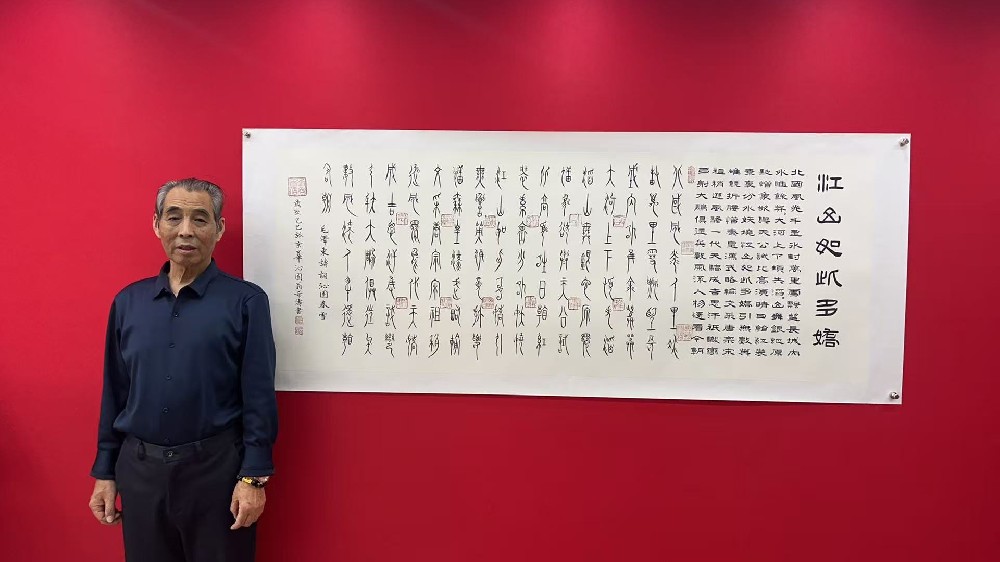 江山如此多嬌
北國風光千里冰封萬里雪飄望長城內
外惟餘莽莽大河上下頓失滔滔山舞銀蛇原
馳蠟象欲與天公試比高須晴日看紅裝
素裹分外妖嬈江山如此多嬌引無數英
雄競折腰惜秦皇漢武略輸文采唐宗宋
祖稍遜風騷一代天驕成吉思汗祇識彎
弓射大鵰俱往矣數風流人物還看今朝
北國風光千里冰
封萬里雪飄望長
城內外惟餘莽莽
大河上下頓失滔
滔山舞銀蛇原馳
蠟象欲與天公試
比高須晴日看紅
裝素裹分外妖嬈
江山如此多嬌引
無數英雄競折腰
惜秦皇漢武略輸
文采唐宗宋祖稍
遜風騷一代天驕
成吉思汗祇識彎
弓射大鵰俱往矣
數風流人物還看
今朝
毛澤東詩詞沁園春雪
歲次乙巳秋京華沁園書